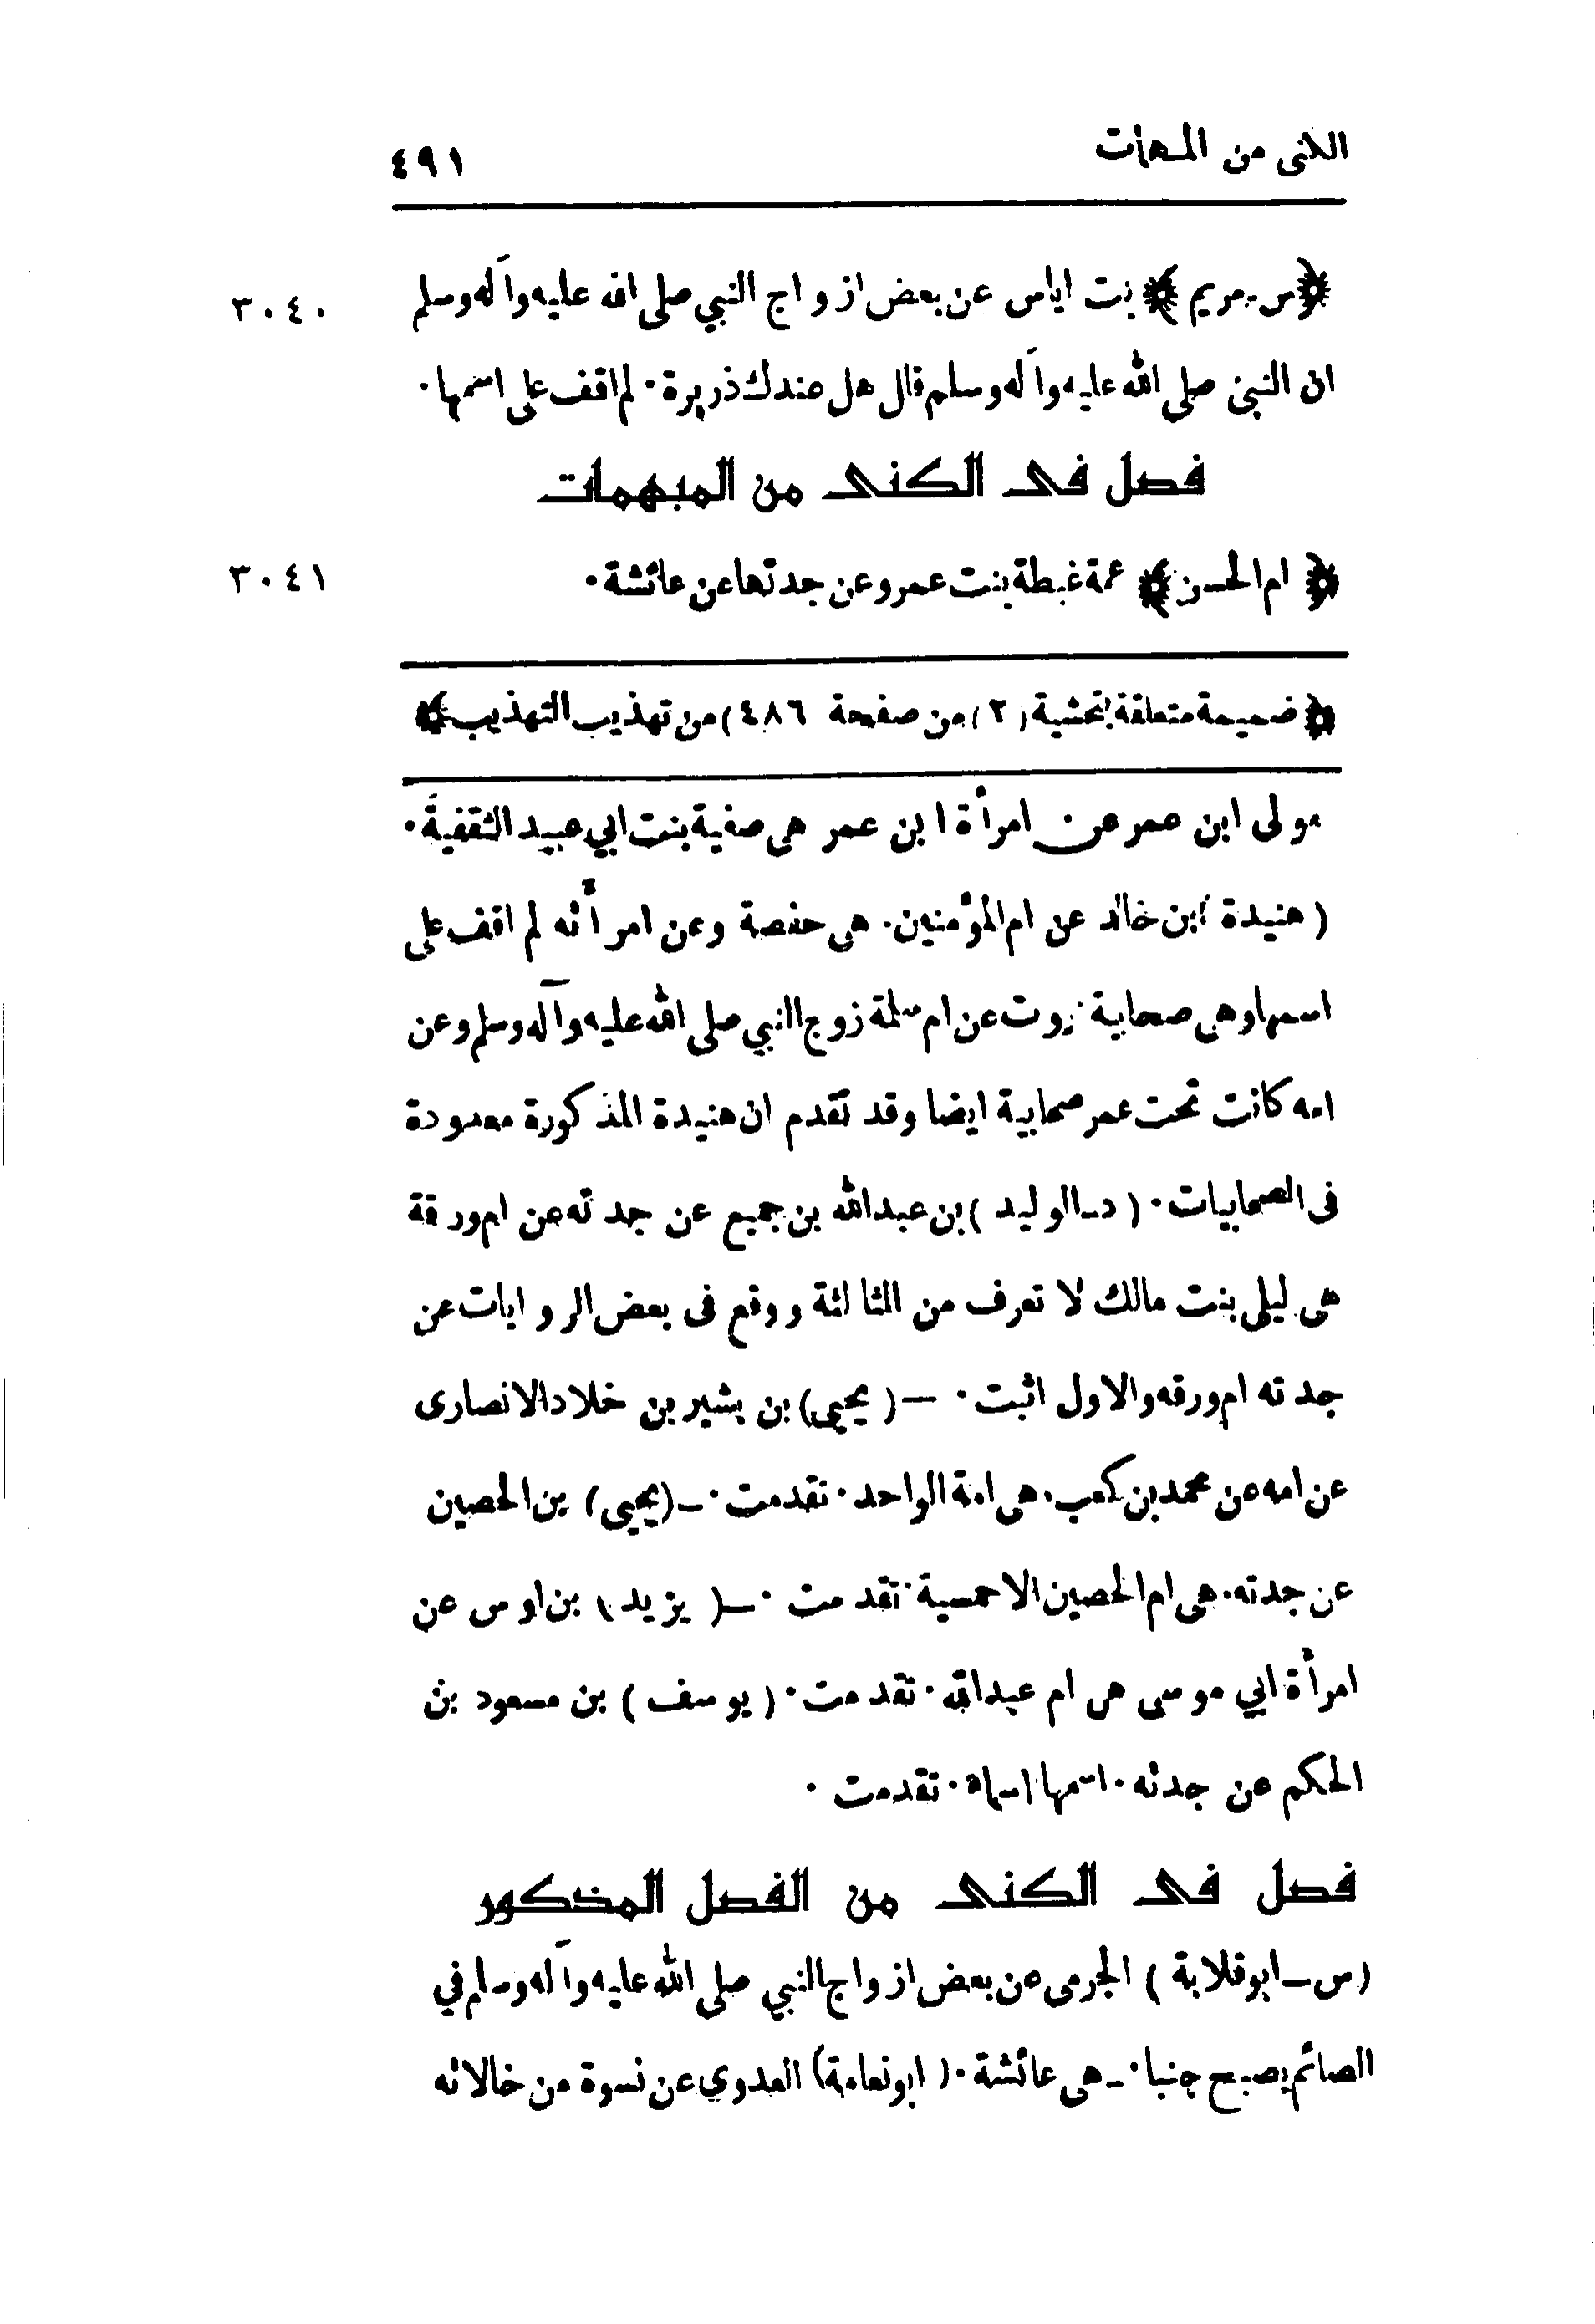 الكنى من المبهمات ٤٩١
﴿س - مريم﴾ بنت اياس عن بعض ازواج النبي صلى الله عليه وآله وسلم ٣٠٤٠
ان النبى صلى الله عليه وآله وسلم قال هل عندك ذريرة. لم اقف على اسمها.
فصل فى الكنى من المبهمات
﴿ام الحسن﴾ عمة غبطة بنت عمرو عن جدتها عن عائشة. ٣٠٤١
﴿ضميمة متعلقة بتحشية (٢) من صفيحة ٤٨٦) من تهذيب التهذيب﴾
مولى ابن عمر عن امرأة ابن عمر هى صفية بنت ابي عبيد الثقفية.
(هنيدة ابن خالد عن ام المؤمنين. هى حفصة وعن امرأته لم اقف على
اسمها وهى صحابية روت عن ام سلمة زوج النبي صلى الله عليه وآله وسلم وعن
امه كانت تحت عمر صحابية ايضا وقد تقدم ان هنيدة المذكورة معدودة
فى الصحابيات. (د-الوليد) بن عبدالله بن جميع عن جدته عن ام ورقة
هى ليلى بنت مالك لا تعرف من الثالثة ووقع فى بعض الروايات عن
جدته ام ورقه والاول اثبت. —(يحيى) بن بشير بن خلاد الانصارى
عن امه عن محمد بن كعب. هى امة الواحد. تقدمت. -(يحيى) بن الحصين
عن جدته. هى ام الحصين الاحمسية. تقدمت. —(يزيد) بن اوس عن
امرأة ابي موسى هى ام عبدالله. تقدمت. (يوسف) بن مسعود بن
الحكم عن جدته. اسمها اسماء. تقدمت.
فصل فى الكنى من الفصل المذكور
(س-ابوقلابة) الجرمى عن بعض ازواج النبي صلى الله عليه وآله وسلم في
الصائم يصبح جنبا. - هى عائشة. (ابونعامة) العدوي عن نسوة من خالاته